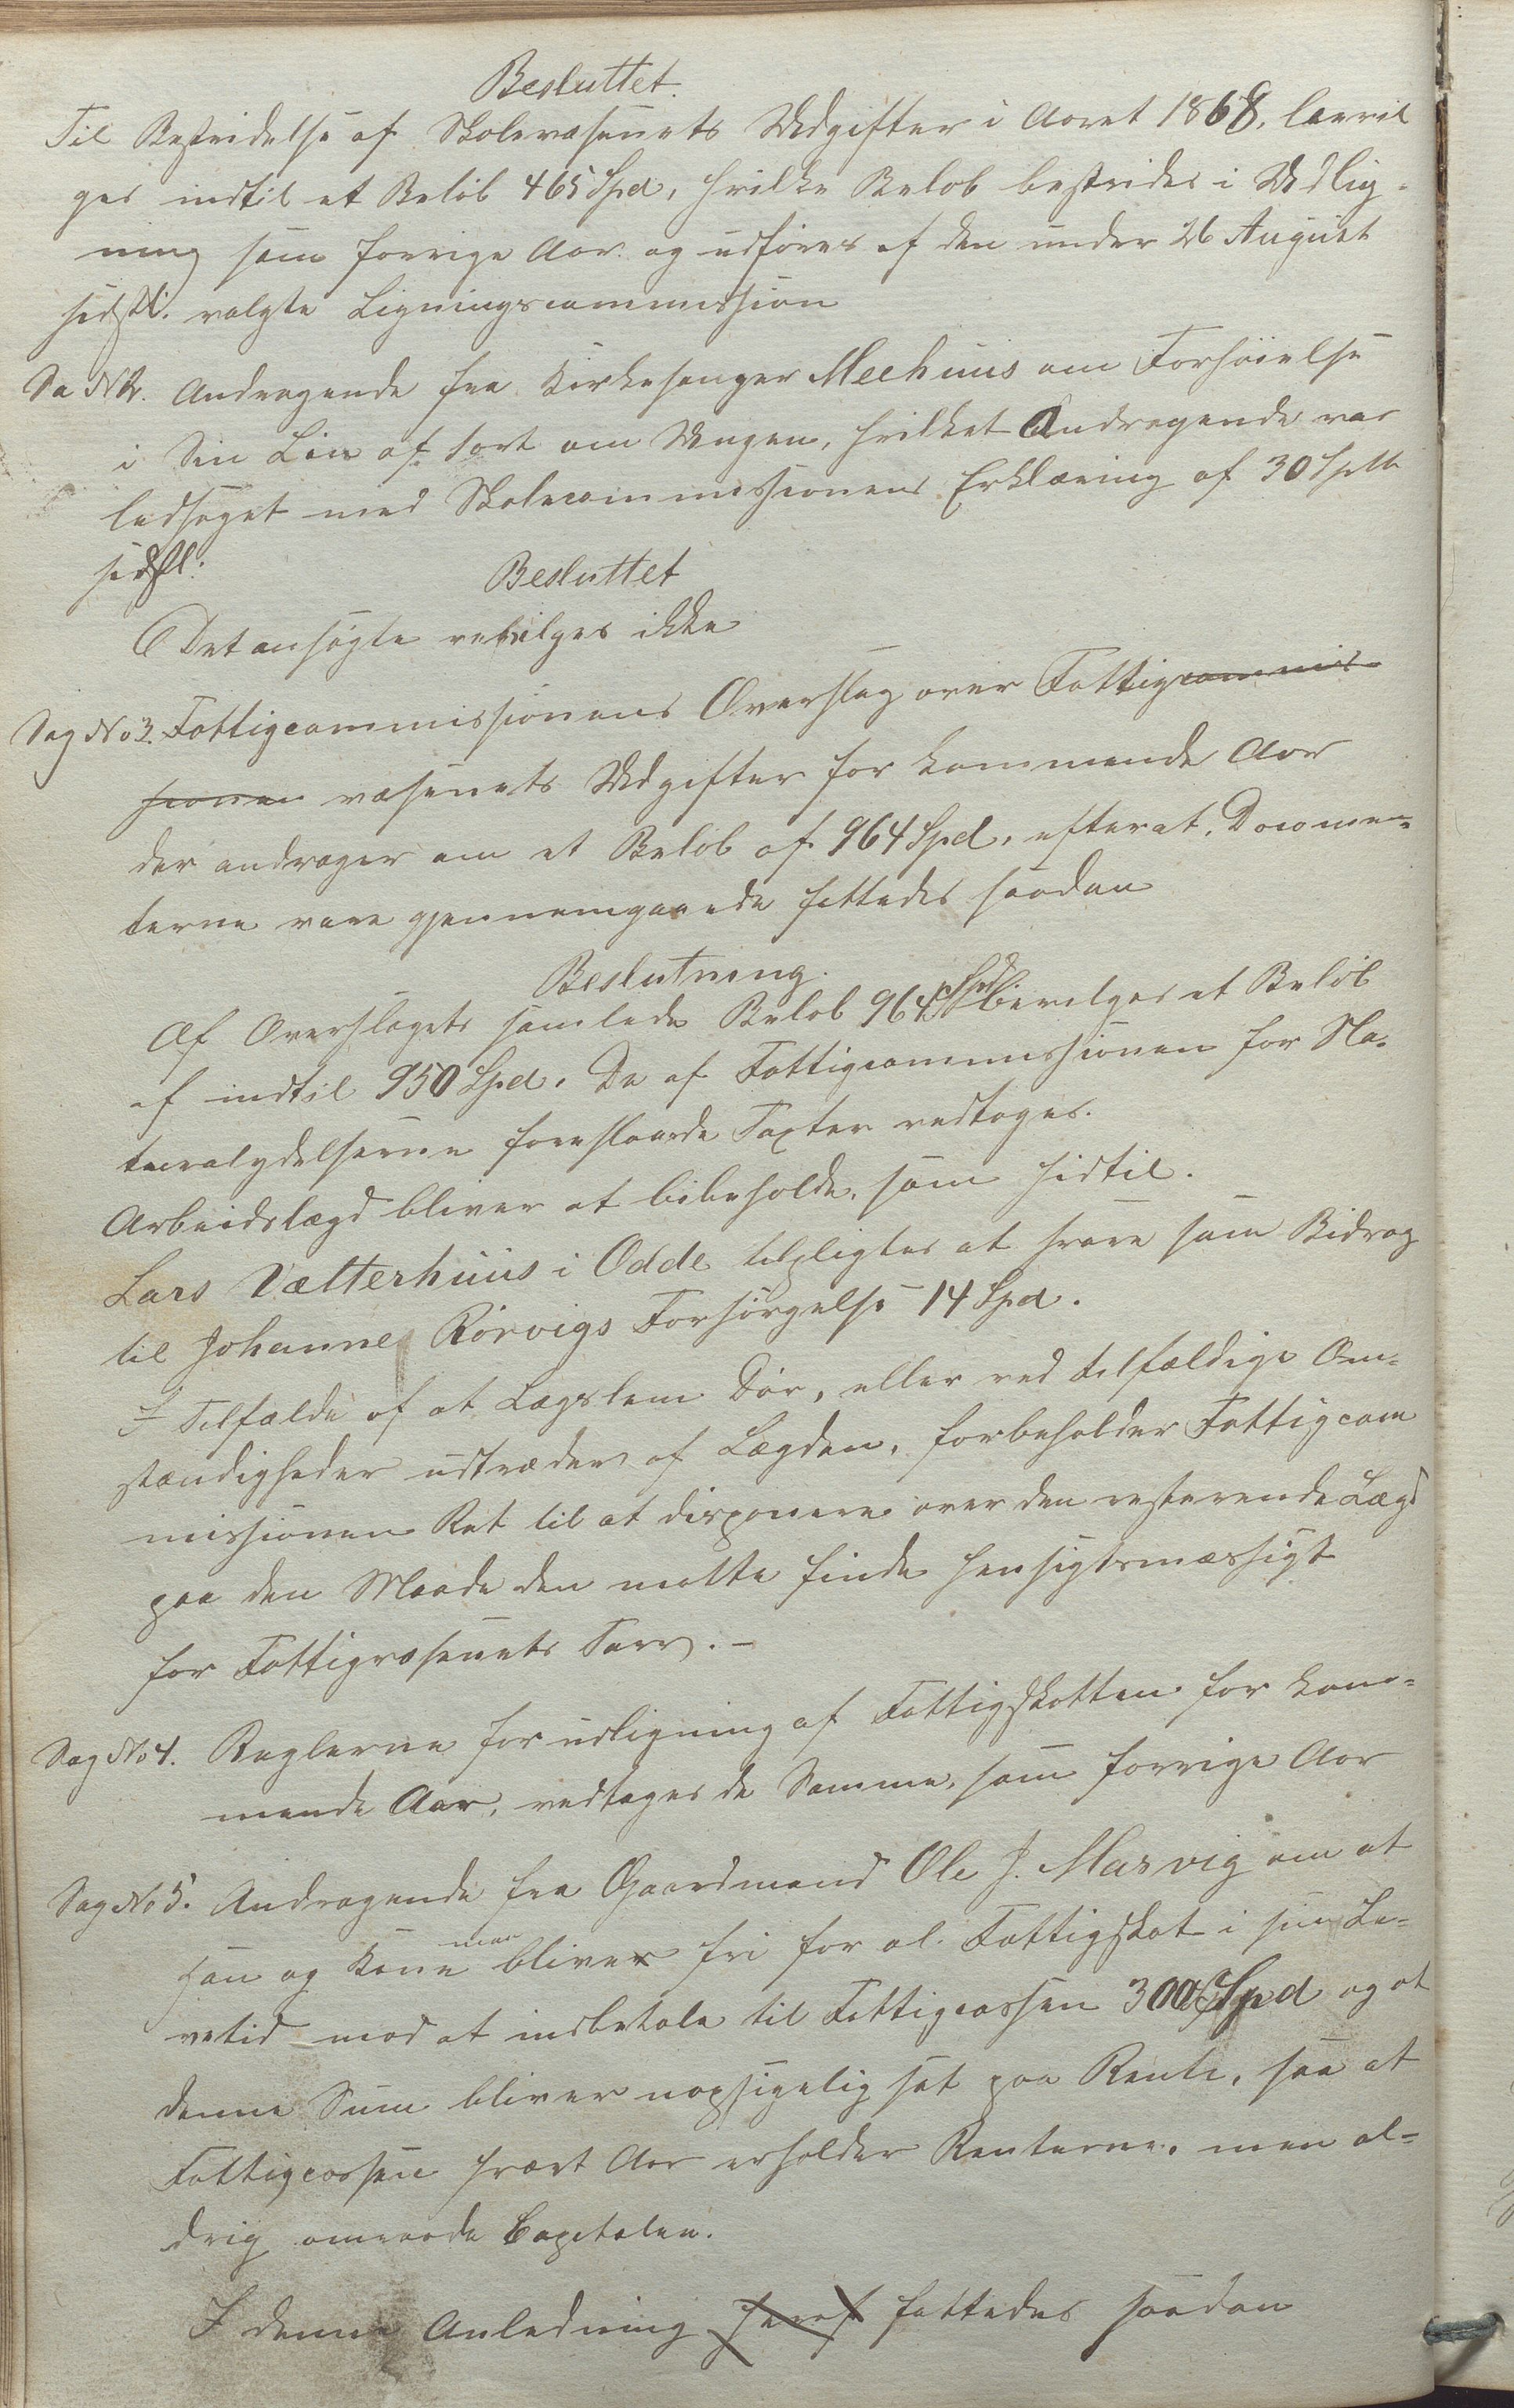 Besluttet.
Til Bestridelse af Skolevæsenets Udgifter i Aaret 1868, bevil
ges indtil et Beløb 465 Spd, hvilke Beløb bestrides i Udlig-
ning som forrige Aar og udføres af den under 26 August
sidstl. valgte Ligningscommission
Sa N2. Andragende fra Kirkesanger Meehuus om Forhøielse
i Sin Løn af 1ort om Ugen, hvilket Andragende var
ledsaget med Skolecommissionens Erklæring af 30 Septb
sidstl:
Besluttet
Det ansøgte vebilges ikke
Sag No 3. Fattigcommissionens Overslag over Fattigcommis-
sionen væsenets Udgifter for kommende Aar
der andrager om et Beløb af 964 Spd, efterat, Documen-
terne vare gjennemgaaede fattedes saadan
Beslutning.
Af Overslagets samlede Beløb 964 Spd bevilges et Beløb
af indtil 950 Spd. De af Fattigcommissionen for Na-
turalydelserne foreslaaede Taxter vedtoges.
Arbeidslægd bliver at bibeholde, som hidtil.
Lars Vætterhuus i Odde tilpligtes at svare som Bidrag
til Johanne Rørvigs Forsørgelse 14 Spd.
I Tilfælde af at Lægslem Dør, eller ved tilfældige Om-
stændigheder udtræder af Lægden, forbeholder Fattigcom
missionen Ret til at disponere over den resterende Lægd
paa den Maade den maatte finde hensigtsmæssigt
for Fattigvæsenets Tarv. -
Sag No 4. Reglerne for udligning af Fattigskatten for kom-
mende Aar, vedtages de Samme, som forrige Aar
Sag No 5. Andragende fra Gaardmand Ole J. Masvig om at
han og Kone maa bliver fri for al Fattigskat i sin Le-
vetid mod at indbetale til Fattigcassen 300 Spd og at
denne Sum bliver uopsigelig sat paa Rente, saa at
Fattigcassen hvært Aar erholder Renterne, men al-
drig omraade Capitalen.
I denne Anledning fattedes saadan